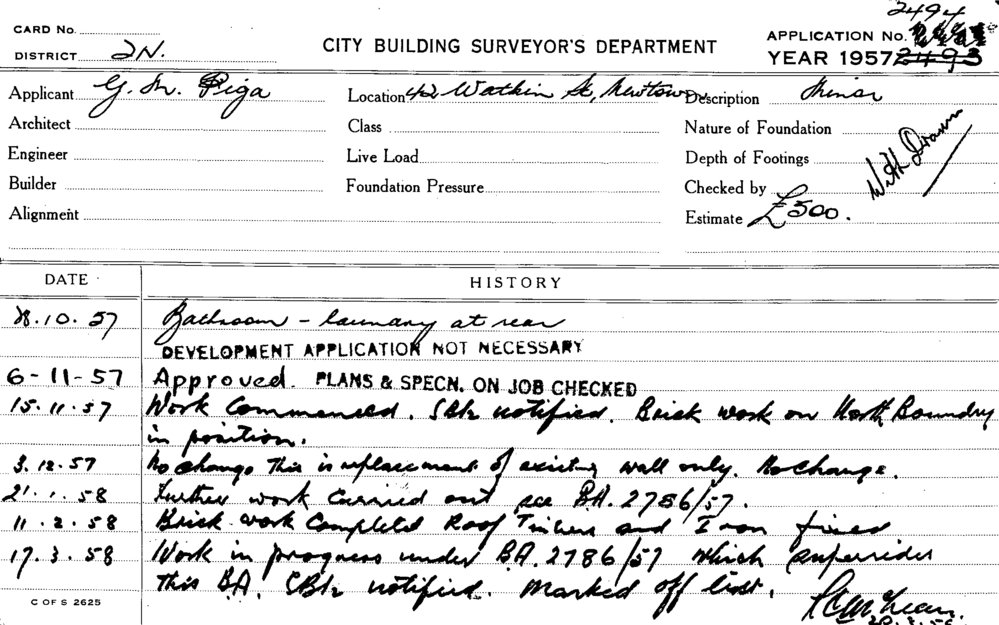 2494
CARD No.
DISTRICT 2N.
CITY BUILDING SURVEYOR'S DEPARTMENT
APPLICATION No.
YEAR 1957 2493
Applicant G. M. Piga
Location 42 Watkin St, Newtown
Description Minor
Architect
Class
Nature of Foundation
Engineer
Live Load
Depth of Footings
Builder
Foundation Pressure
Checked by
Withdrawn
Alignment
Estimate £500.
DATE HISTORY
28.10.57 Bathroom - laundry at rear
DEVELOPMENT APPLICATION NOT NECESSARY
6-11-57 Approved. PLANS & SPECN. ON JOB CHECKED
15.11.57 Work Commenced. notified. Brick work on North Boundry
in position.
3.12.57 No change This is replacement of existing wall only. No change.
21.1.58 Further work carried out see BA. 2786/57.
11.2.58 Brick work Completed Roof Timbers and Iron fixed
17.3.58 Work in progress under B.A. 2786/57 which supersides
this B.A. notified. Marked off list.
C OF S 2625